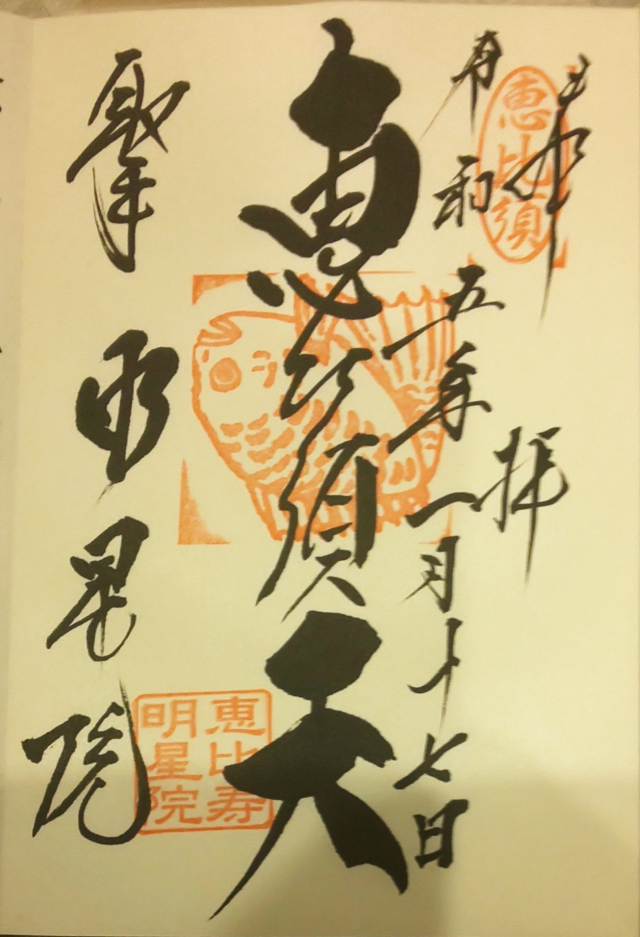 奉拝
恵比須
令和五年一月十七日
恵比須天
明星院
恵比寿
明星院